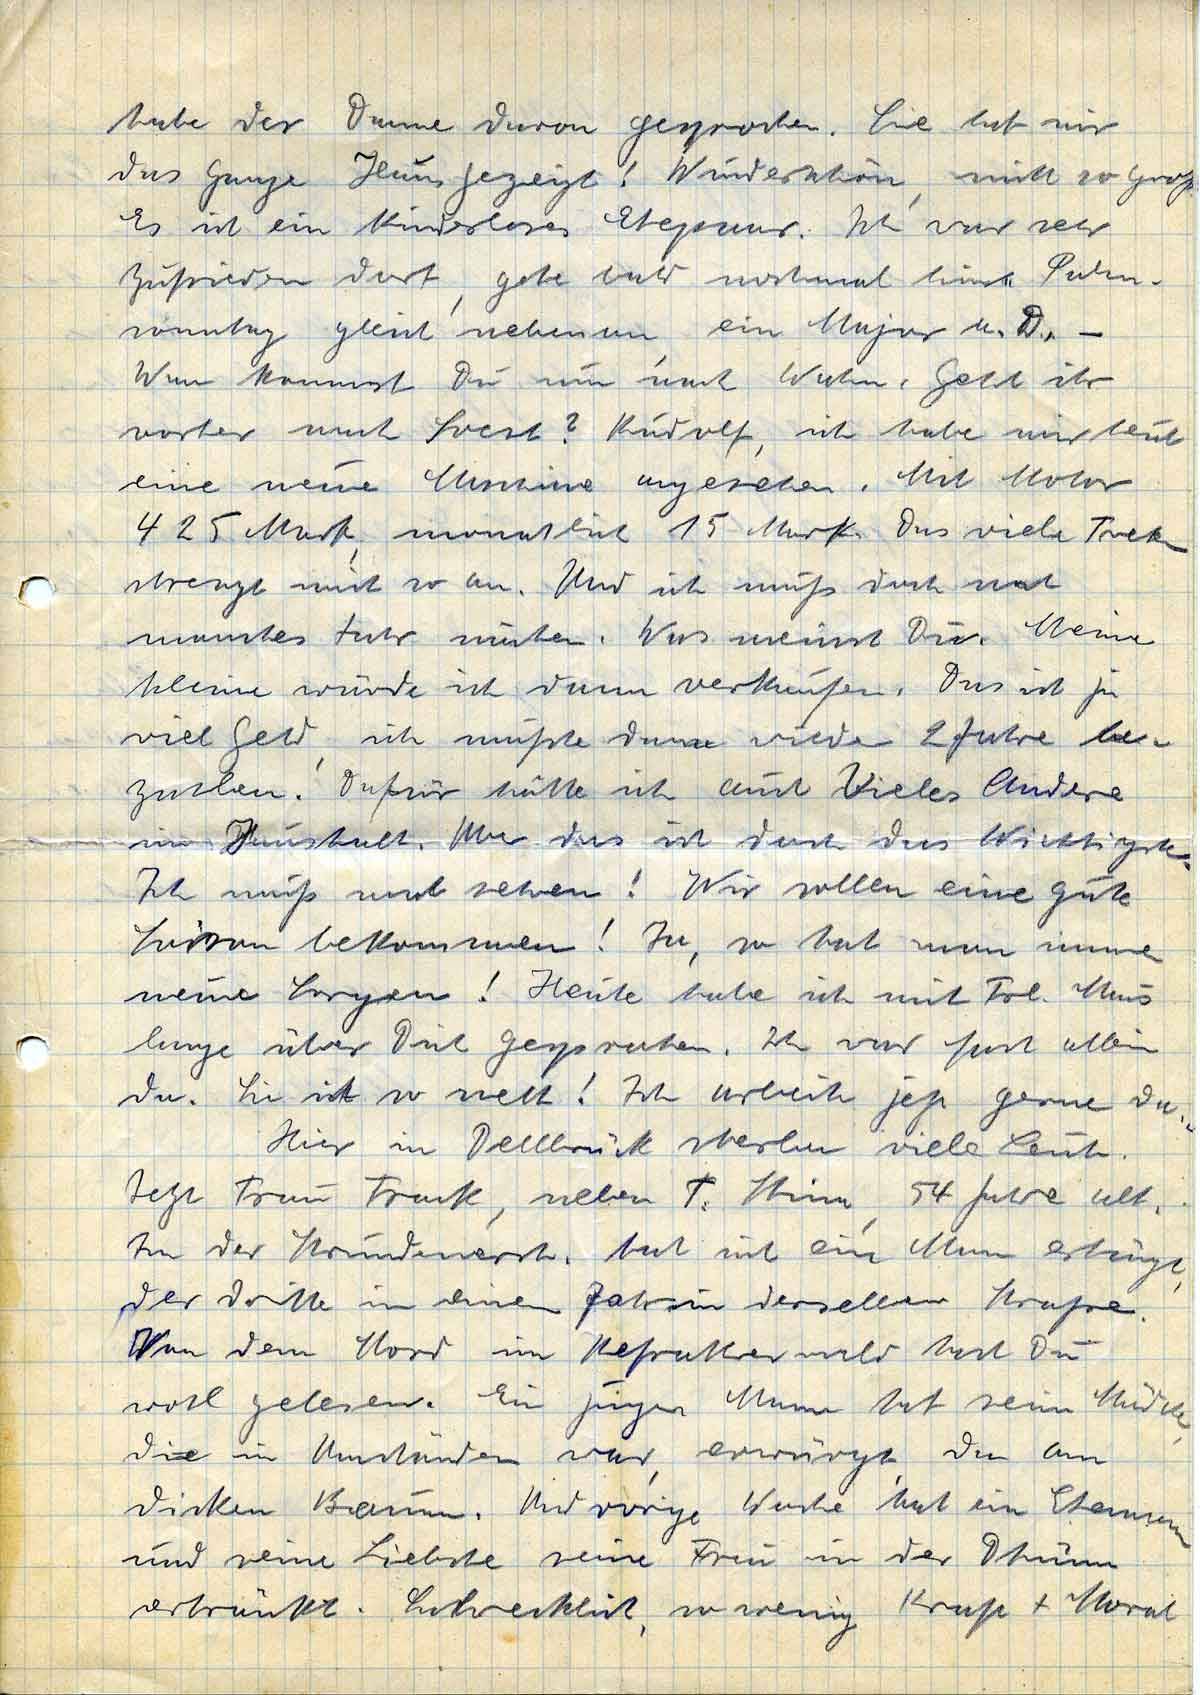 habe der Dame davon gesprochen. Sie hat mir
das ganze Haus gezeigt! Wunderschön, nicht so groß.
Es ist ein kinderloses Ehepaar. Ich war sehr
zufrieden dort, gehe bald nochmal hin. Palm-
sonntag gleich nebenan, ein Major a. D. —
Wann kommst Du nun nach Wahn. Geht ihr
vorher nach Soest? Rudolf, ich habe mir heut
eine neue Maschine angesehen. Mit Motor
425 Mark, monatlich 15 Mark. Das viele Treten
strengt mich so an. Und ich muß doch noch
manches Jahr nähen. Was meinst Du. Meine
kleine würde ich dann verkaufen. Das ist ja
viel Geld, ich müßte dann wieder 2 Jahre be-
zahlen! Dafür hätte ich auch Vieles Andere
im Haushalt. Aber das ist doch das Wichtigste.
Ich muß mal sehen! Wir sollen eine gute
Saison bekommen! Ja, so hat man immer
neue Sorgen! Heute habe ich mit Frl. Maus
lange über Dich gesprochen. Ich war fast allein
da. Sie ist so nett! Ich arbeite jetzt gerne da.
Hier in Dellbrück sterben viele Leute.
Jetzt Frau Frank, neben T. 54 Jahre alt.
In der hat sich ein Mann erhängt,
der dritte in einem Jahr in derselben Straße.
Von dem Mord im Refrather Wald hast Du
wohl gelesen. Ein junger Mann hat sein Mädel,
die in Umständen war, erwürgt, da am
dicken Baum. Und vorige Woche hat ein Ehemann
und seine Liebste seine Frau in der Dhünn
ertränkt. Schrecklich, so wenig Kraft + Moral